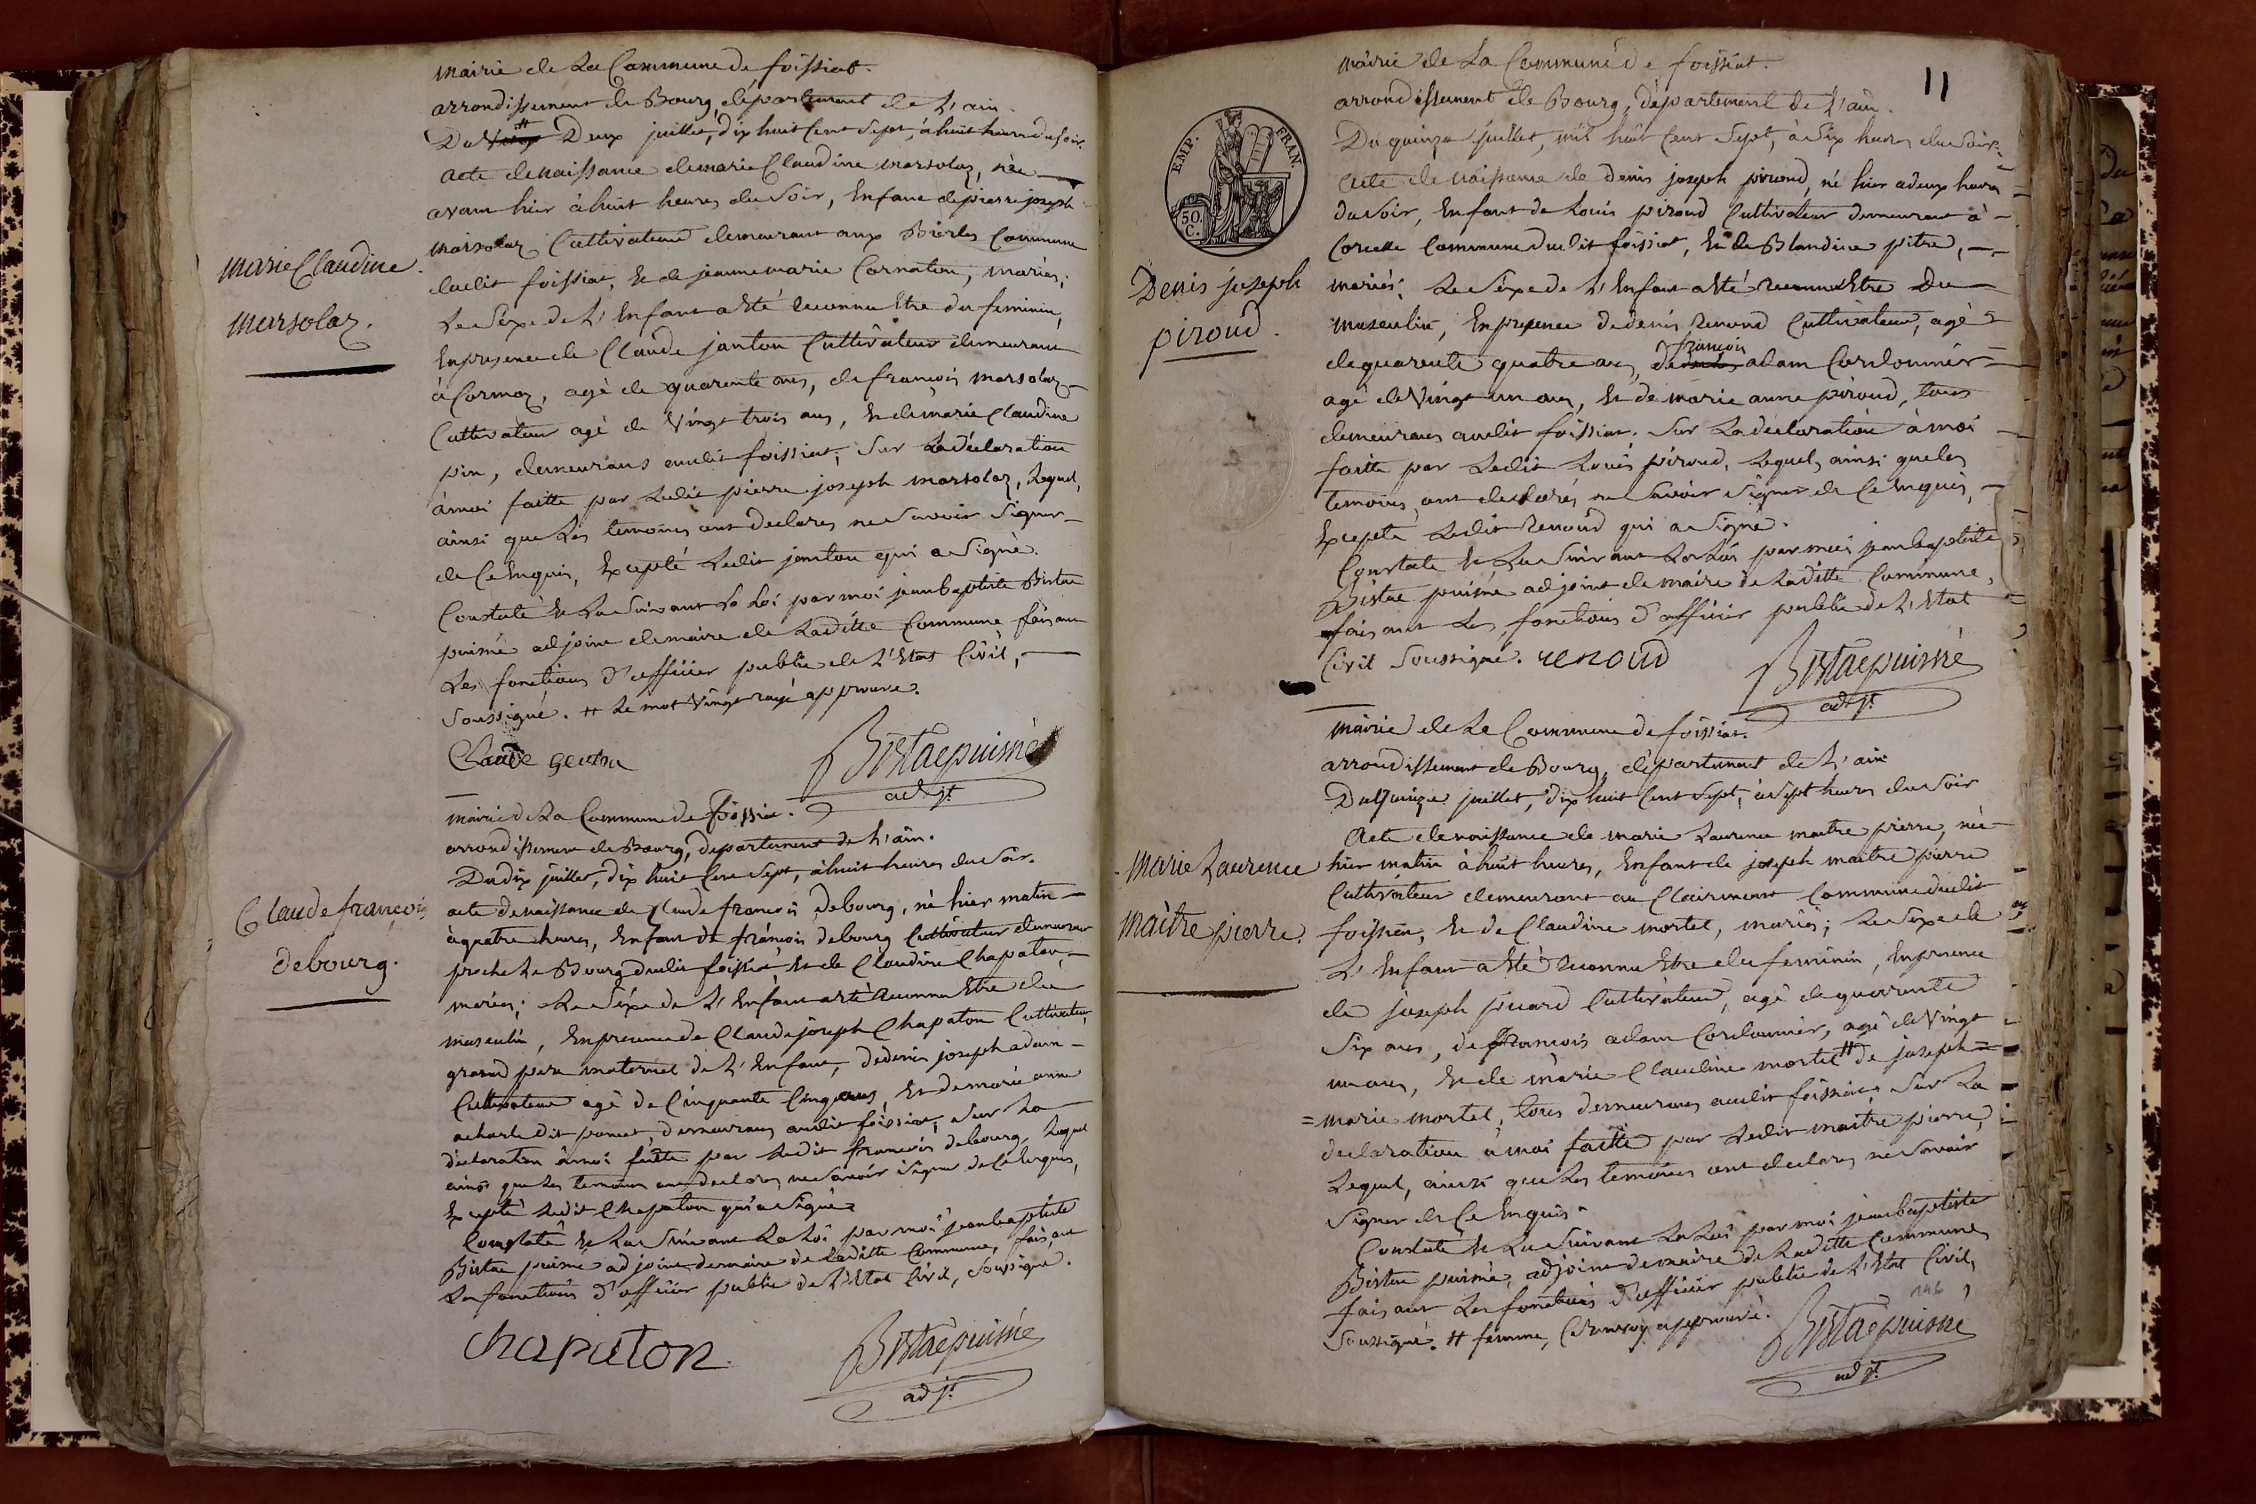 mairie de La Commune de foissiat.
arrondissement de Bourg, département de L'ain.
Du Vingt # Deux juillet, dix huit Cent Sept, à huit heures du soir.
Acte de naissance de marie Claudine marsolaz, née
avant hier à huit heures du Soir, Enfant de pierre joseph
marsolaz Cultivateur demeurant aux Commune
dudit foissiat, Et de jeanne marie Cornaton, mariés;
Le Sexe de L'Enfant a Eté reconnu Etre du feminin,
En presence de Claude janton Cultivateur demeurant
à Cormoz, agé de quarente ans, de francois marsolaz
Cultivateur agé de Vingt trois ans, Et de marie Claudine
pin, demeurans audit foissiat, Sur La déclaration
à moi faitte par Ledit pierre joseph marsolaz, Lequel,
ainsi que Les temoins ont declarés ne Savoir Signer
de Ce Enquis, Excepté Ledit janton qui a Signé.
Constaté Et Lu Suivant La Loi par moi jean baptiste Bistae
puiné adjoint de maire de Laditte Commune faisant
Les fonctions d'officier public de L'Etat Civil,
Soussigné. # Le mot Vingt rayé approuvé.
Marie Claudine
marsolaz.
Bistaepuiné
adjt.
mairie de La Commune de foissiat.
arrondissement de Bourg, département de L'ain.
Du dix juillet, dix huit Cent Sept, à huit heures du Soir.
acte de naissance de Claude francois debourg, né hier matin
à quatre heures, Enfant de francois debourg Cultivateur demeurant
proche Le Bourg dudit foissiat Et de Claudine Chapaton,
mariés; Le Sexe de L'Enfant a Eté reconnu Etre du
masculin, En presence de Claude joseph Chapaton Cultivateur,
grand pere maternel de L'Enfant, de denis joseph adam
Cultivateur agé de Cinquante Cinq ans, Et de marie anne
dit poncet, demeurans audit foissiat, Sur La
déclaration à moi faitte par Ledit francois debourg, Lequel
ainsi que Les temoins ont declarés ne Savoir Signer de Ce Enquis,
Excepté Ledit Chapaton qui a Signé
Constaté Et Lu Suivant La Loi par moi jean baptiste
Bistae puiné adjoint de maire de Laditte Commune, faisant
Les fonctions d'officier public de L'Etat Civil, Soussigné.
Claude françois
debourg.
chapaton
Bistaepuiné
adjt.
11
EMP. FRAN.
50. C.
mairie de La Commune de foissiat.
arrondissement de Bourg, département de L'ain.
Du quinze juillet, mil huit Cent Sept, à Six heures du Soir.
Acte de naissance de denis joseph piroud, né hier a deux heures
du Soir, Enfant de Louis piroud Cultivateur demeurant à
Corcelle Commune dudit foissiat, Et de Blandine pitre,
mariés; Le Sexe de L'Enfant a Eté reconnu Etre Du
masculin, En presence de denis Renoud Cultivateur, agé
de quarente quatre ans, de francois adam Cordonnier
agé de Vingt un ans, Et de marie anne piroud, tous
demeurans audit foissiat. Sur La déclaration à moi
faitte par Ledit Louis piroud, Lequel, ainsi que Les
temoins, ont declarés ne Savoir Signer de Ce Enquis,
Excepté Ledit Renoud qui a Signé.
Constaté Et Lu Suivant La Loi par moi jean baptiste
Bistae puiné adjoint de maire de Laditte Commune,
faisant Les fonctions d'officier public de L'Etat
Civil Soussigné. renoud
Denis joseph
piroud.
Bistaepuiné
adjt.
mairie de La Commune de foissiat.
arrondissement de Bourg, département de L'ain
Du Quinze juillet, dix huit Cent Sept, à Sept heures du Soir
Acte de naissance de marie Laurence maitre pierre, née
hier matin à huit heures, Enfant de joseph maitre pierre
Cultivateur demeurant au Clairmont Commune dudit
foissiat, Et de Claudine mortel, mariés; Le Sexe de
L'Enfant a Eté reconnu Etre du feminin, En presence
de joseph Cultivateur, agé de quarente
Six ans, de francois adam Cordonnier, agé de Vingt
un ans, Et de marie Claudine mortel # de joseph =
= marie mortel, tous demeurans audit foissiat, Sur La
déclaration à moi faitte par Ledit maitre pierre,
Lequel, ainsi que Les temoins ont declarés ne Savoir
Signer de Ce Enquis.
Constaté Et Lu Suivant La Loi par moi jean baptiste
Bistae puiné, adjoint de maire de Laditte Commune,
faisant Les fonctions d'officier public de L'Etat Civil,
Soussigné. # femme, Ce renvoy approuvé.
Marie Laurence
Maitre pierre.
146
Bistaepuiné
adjt.